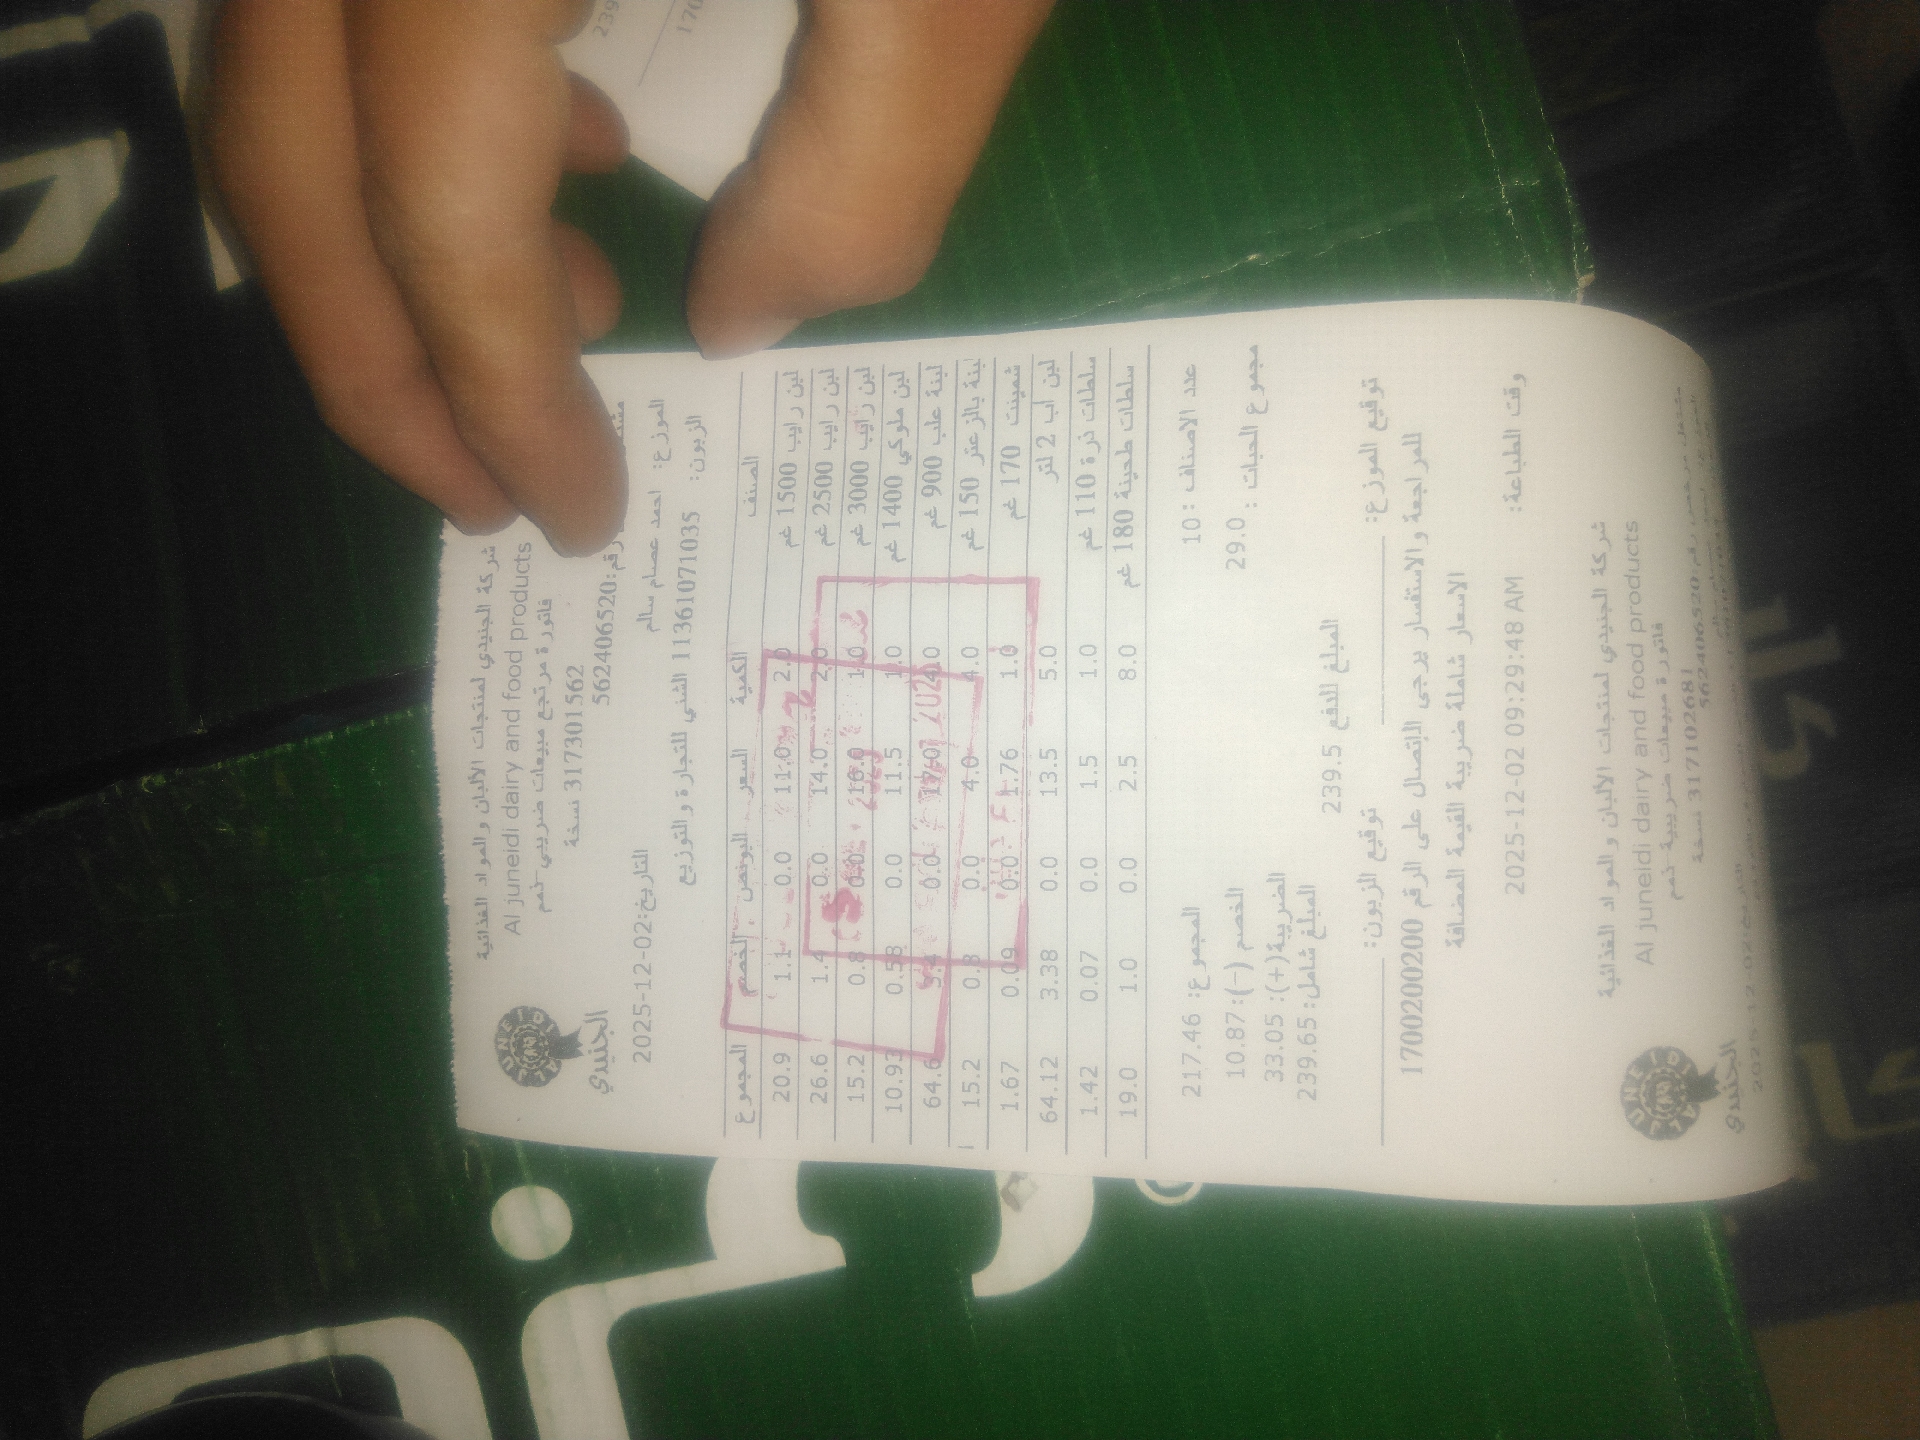 شركة الجنيدي لمنتجات الألبان والمواد الغذائية
Al juneidi dairy and food products
فاتورة مرتجع مبيعات ضريبي ذمم
317301562 نسخة
رقم: 562406520
الجنيدي
الموزع: احمد عصام سالم
التاريخ: 2025-12-02
الزبون: 11136107103 5 الشني للتجارة والتوزيع
الصنف الكمية السعر البونص الخصم المجموع
لبن رايب 1500 غم 2.0 11.0 0.0 1.1 20.9
لبن رايب 2500 غم 2.0 14.0 0.0 1.4 26.6
لبن رايب 3000 غم 1.0 16.0 0.0 0.8 15.2
لبن ملوكي 1400 غم 1.0 11.5 0.0 0.58 10.93
لبنة علب 900 غم 4.0 17.0 0.0 3.4 64.6
لبنة بالزعتر 150 غم 4.0 4.0 0.0 0.8 15.2
شمينت 170 غم 1.0 1.76 0.0 0.09 1.67
لبن اب 2 لتر 5.0 13.5 0.0 3.38 64.12
سلطات ذرة 110 غم 1.0 1.5 0.0 0.07 1.42
سلطات طحينة 180 غم 8.0 2.5 0.0 1.0 19.0
عدد الاصناف: 10
المجموع: 217.46
مجموع الحبات: 29.0
الخصم (-): 10.87
الضريبة(+): 33.05
المبلغ شامل: 239.65
المبلغ للدفع 239.5
توقيع الموزع:
توقيع الزبون:
للمراجعة والاستفسار يرجى الاتصال على الرقم 1700200200
الاسعار شاملة ضريبة القيمة المضافة
وقت الطباعة: 2025-12-02 09:29:48 AM
شركة الجنيدي لمنتجات الألبان والمواد الغذائية
Al juneidi dairy and food products
فاتورة مبيعات ضريبية ذمم
317102681 نسخة
562406520
الجنيدي
2025-12-02